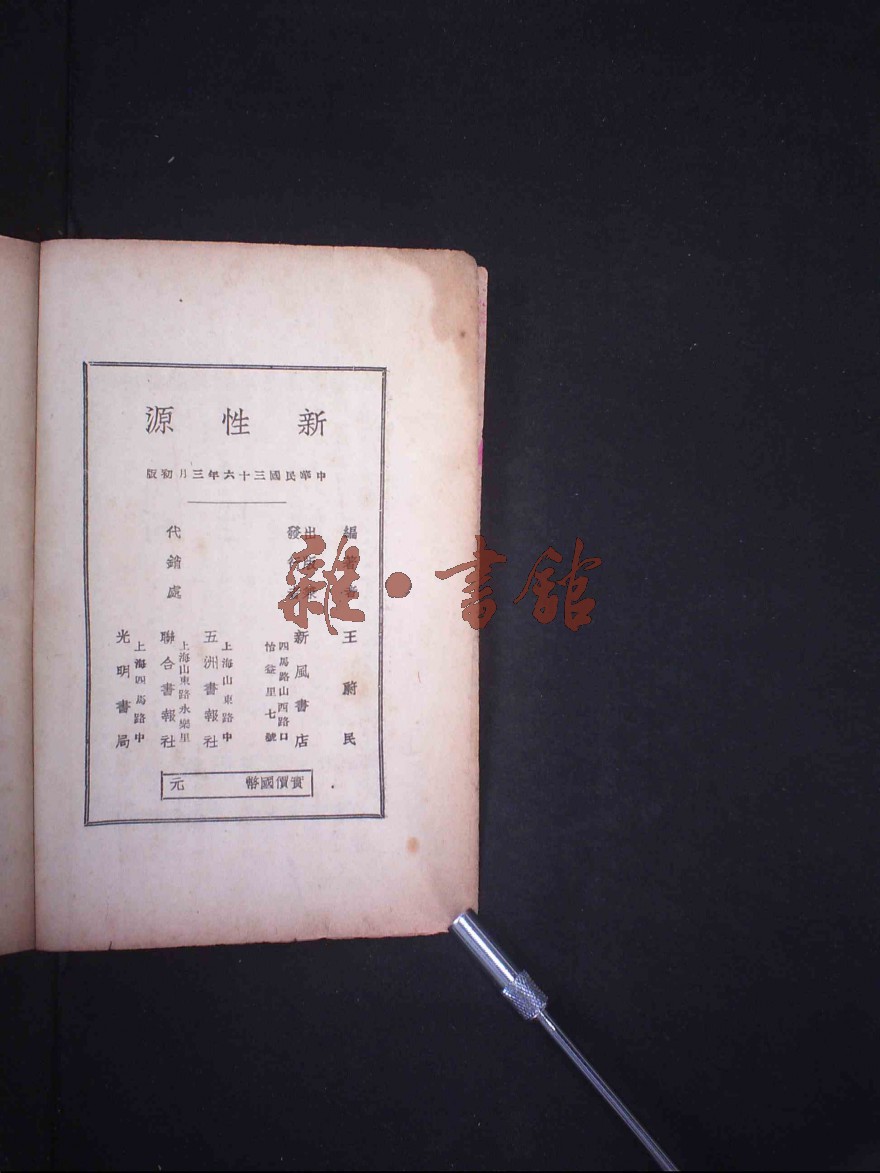 新性源
中華民國三十六年三月初版
編著者
王蔚民
出版兼
發行者
新風書店
四馬路山西路口
怡益里七號
代銷處
上海山東路中
五洲書報社
上海山東路永樂里
聯合書報社
上海四馬路中
光明書局
實價國幣 元
雜·書館